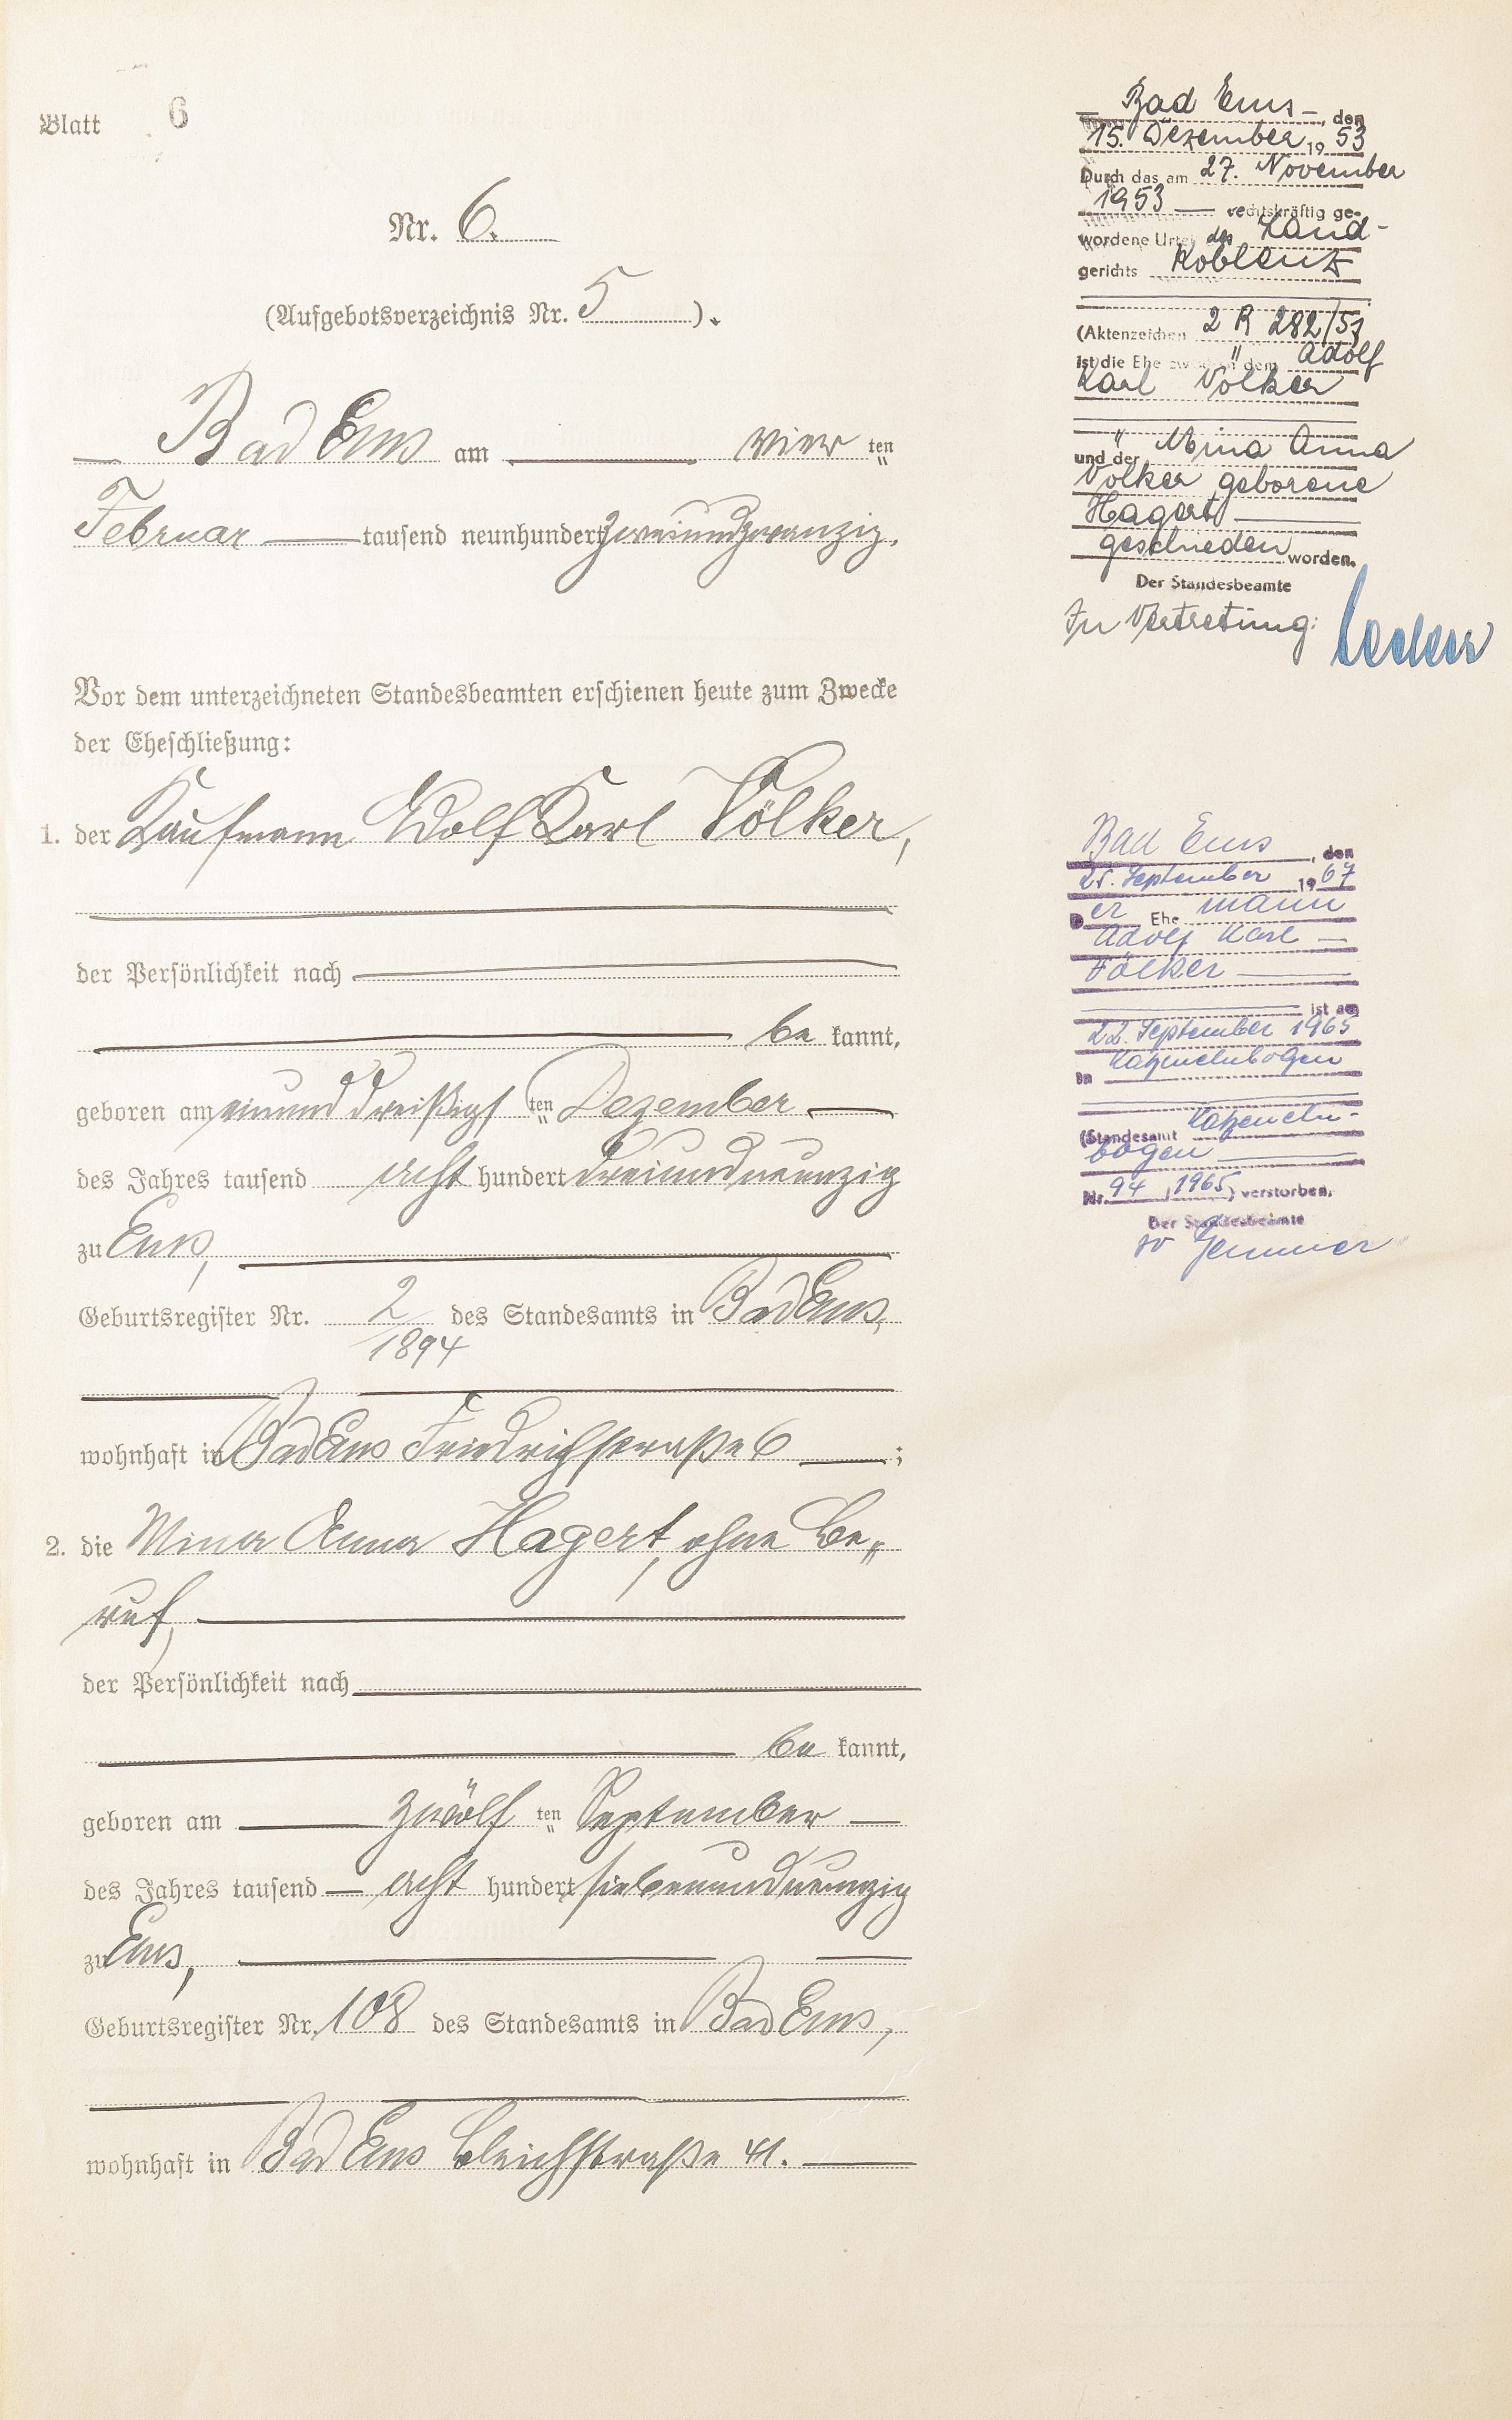 Blatt 6
Nr. 6.
(Aufgebotsverzeichnis Nr. 5 ).
Bad Ems am vier ten
Februar tausend neunhundert zweiundzwanzig.
Vor dem unterzeichneten Standesbeamten erschienen heute zum Zwecke
der Eheschließung:
1. der Kaufmann Adolf Karl Völker,
der Persönlichkeit nach
be kannt,
geboren am einund dreißigs ten Dezember
des Jahres tausend acht hundert dreiundneunzig
zu Ems,
Geburtsregister Nr. 2 des Standesamts in Bad Ems,
1894
wohnhaft in Bad Ems Friedrichstraße 6 ;
2. die Mina Anna Hagert, ohne Be„
ruf,
der Persönlichkeit nach
be kannt,
geboren am zwölf ten September
des Jahres tausend acht hundert siebenundneunzig
zu Ems,
Geburtsregister Nr. 108 des Standesamts in Bad Ems,
wohnhaft in Bad Ems Bleichstraße 41.
Bad Ems, den
15. Dezember 19 53
Durch das am 27. November
1953 rechtskräftig ge-
wordene Urteil des Land-
gerichts Koblenz
(Aktenzeichen 2 R 282/53
ist die Ehe zwischen dem Adolf
Karl Völker
und der Mina Anna
Völker geborene
Hagert
geschieden worden.
Der Standesbeamte
In Vertretung:
Bad Ems, den
25. September 19 67
Der Ehe mann
Adolf Karl
Völker
ist am
22. September 1965
in Katzenelnbogen
(Standesamt Katzeneln-
bogen
Nr. 94 / 1965) verstorben.
Der Standesbeamte